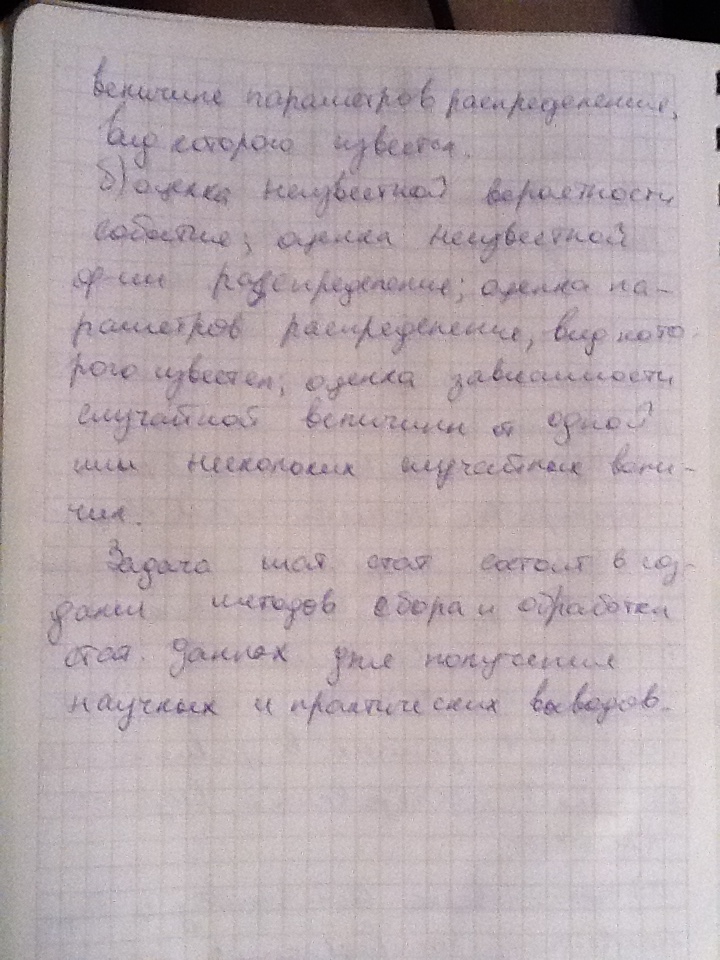 величине параметров распределения,
вид которого известен.
б) оценка неизвестной вероятности
события; оценка неизвестной
ф-ции распределения; оценка па-
раметров распределения, вид кото-
рого известен; оценка зависимости
случайной величины от одной
или нескольких случайных вели-
чин.
Задача мат стат состоит в соз-
дании методов сбора и обработки
стат. данных для получения
научных и практических выводов.